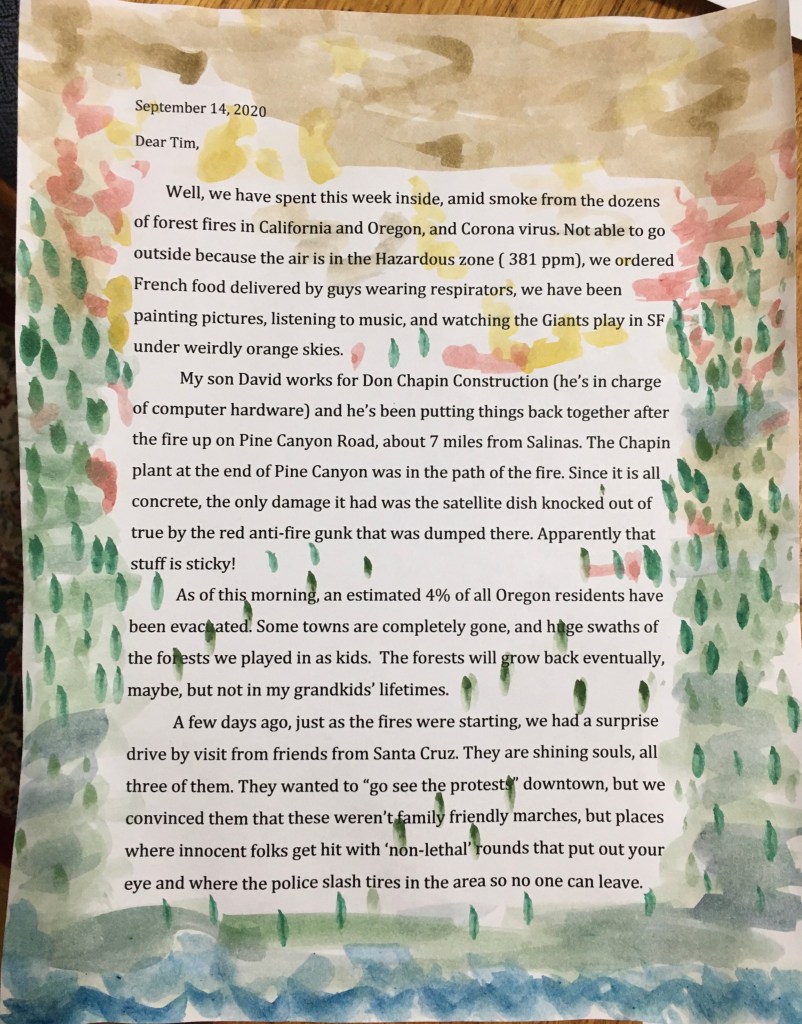 September 14, 2020
Dear Tim,
Well, we have spent this week inside, amid smoke from the dozens
of forest fires in California and Oregon, and Corona virus. Not able to go
outside because the air is in the Hazardous zone ( 381 ppm), we ordered
French food delivered by guys wearing respirators, we have been
painting pictures, listening to music, and watching the Giants play in SF
under weirdly orange skies.
My son David works for Don Chapin Construction (he's in charge
of computer hardware) and he's been putting things back together after
the fire up on Pine Canyon Road, about 7 miles from Salinas. The Chapin
plant at the end of Pine Canyon was in the path of the fire. Since it is all
concrete, the only damage it had was the satellite dish knocked out of
true by the red anti-fire gunk that was dumped there. Apparently that
stuff is sticky!
As of this morning, an estimated 4% of all Oregon residents have
been evacuated. Some towns are completely gone, and huge swaths of
the forests we played in as kids.  The forests will grow back eventually,
maybe, but not in my grandkids' lifetimes.
A few days ago, just as the fires were starting, we had a surprise
drive by visit from friends from Santa Cruz. They are shining souls, all
three of them. They wanted to "go see the protests" downtown, but we
convinced them that these weren't family friendly marches, but places
where innocent folks get hit with 'non-lethal' rounds that put out your
eye and where the police slash tires in the area so no one can leave.